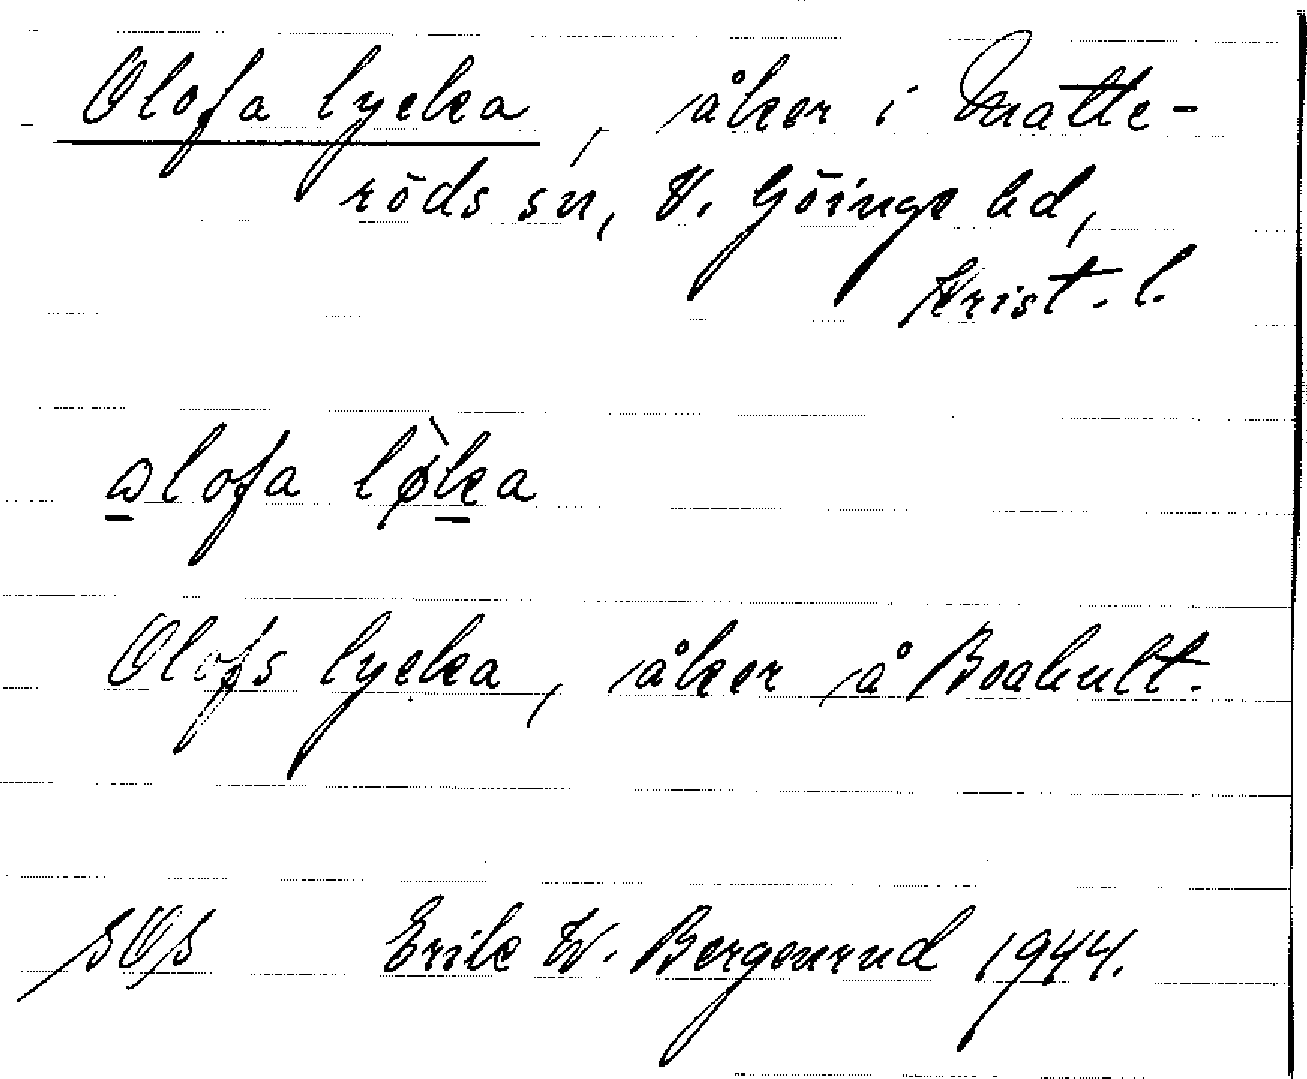 Olofa lycka, åker i Matte-
röds sn, V. Göinge hd,
Krist. l.
alofa løka
Olofs lycka, åker å Boahult.
Erik W. Bergenrud 1944.